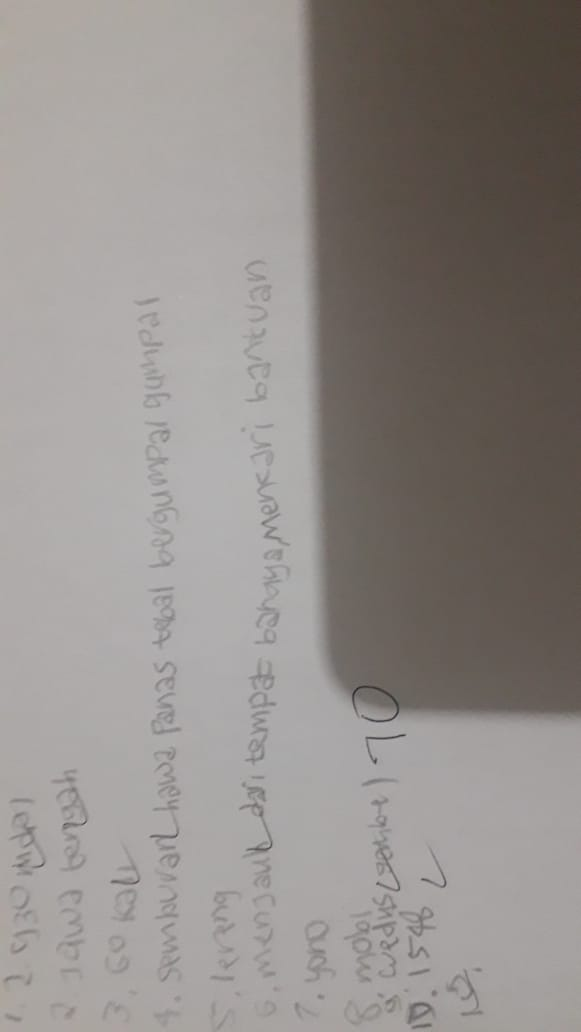 1. 2.930 mdpl
2. Jawa tengah
3. 60 kali
4. semburan hawa panas tebal bergumpal gumpal
5. lereng
6. menjauh dari tempat bahaya, mencari bantuan
7. 4000
8. mdpl
9. wedhus gembel
10. 1548
70